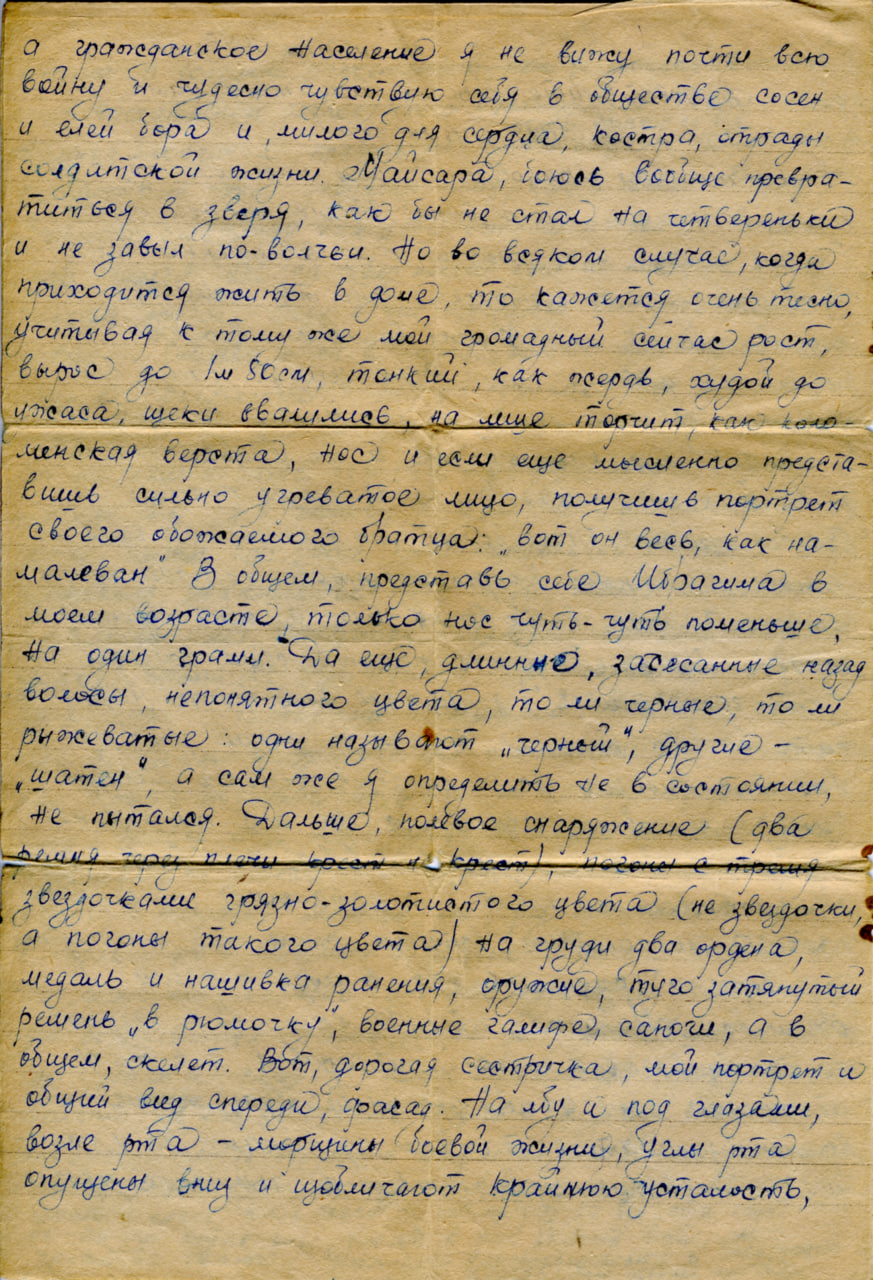 а гражданское население я не вижу почти всю
войну и чудесно чувствую себя в обществе сосен
и елей бора и милого для сердца, костра, отрады
солдатской жизни. Майсара, боюсь вообще превра-
титься в зверя, как бы не стал на четвереньки
и не завыл по-волчьи. Но во всяком случае, когда
приходится жить в доме, то кажется очень тесно,
учитывая к тому же мой громадный сейчас рост,
вырос до 1м 80см, тонкий, как жердь, худой до
ужаса, щеки ввалились, на лице торчит, как коло-
менская верста, нос и если еще мысленно предста-
вишь сильно угреватое лицо, получишь портрет
своего обожаемого братца: „вот он весь, как на-
малеван“ В общем, представь себе Ибрагима в
моем возрасте, только нос чуть-чуть поменьше,
на один грамм. Да еще, длинные, зачесанные назад
волосы, непонятного цвета, то ли черные, то ли
рыжеватые: одни называют „черный“, другие –
„шатен“, а сам же я определить не в состоянии,
не пытался. Дальше, полевое снаряжение (два
ремня через плечи крест на крест), погоны с тремя
звездочками грязно-золотистого цвета (не звездочки,
а погоны такого цвета) на груди два ордена,
медаль и нашивка ранения, оружие, туго затянутый
ремень „в рюмочку“, военные галифе, сапоги, а в
общем, скелет. Вот, дорогая сестричка, мой портрет и
общий вид спереди, фасад. На лбу и под глазами,
возле рта – морщины боевой жизни, углы рта
опущены вниз и изобличают крайнюю усталость,